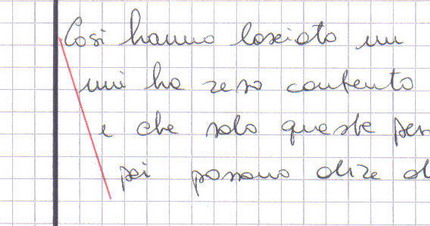 Così hanno lasciato un
mi ha reso contento
e che solo queste per
poi possono dire d